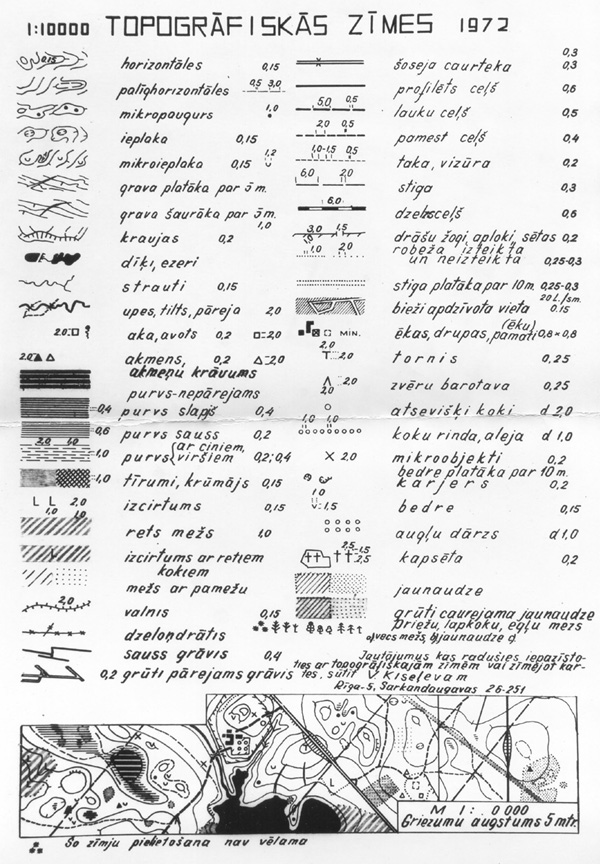 1:10000 TOPOGRĀFISKĀS ZĪMES 1972
horizontāles 0,15
palīghorizontāles 0,5 3,0
mikropaugurs 1,0
ieplaka 0,15
mikroieplaka 0,15 1,2
grava platāka par 5 m.
grava šaurāka par 5 m.
kraujas 0,2 1,0
dīķi, ezeri
strauti 0,15
upes, tilts, pāreja 2,0
2.0 aka, avots 0,2 2,0
2.0 akmens, 0,2 2,0
akmeņu krāvums
purvs-nepārejams
0,4 purvs slapjš 0,4
0,6 purvs sauss 0,2
2,0 1,0 1,0 purvs (ar ciņiem, viršiem 0,2; 0,4
1,0 tīrumi, krūmājs 0,15
L L 2,0 1,0 1,0 izcirtums 0,15
rets mežs 1,0
izcirtums ar retiem kokiem
mežs ar pamežu
2.0 valnis 0,15
dzeloņdrātis
sauss grāvis 0,4
0,2 grūti pārejams grāvis
šoseja caurteka 0,3 0,3
profilēts ceļš 0,6
5,0 0,5 lauku ceļš 0,5
2,0 0,5 pamest ceļš 0,4
1,0-1,5 0,5 taka, vizūra 0,2
6,0 2,0 stiga 0,3
6,0 dzelzsceļš 0,6
3,0 1,5 drāšu žogi, aploki, sētas 0,2
1,0 2,0 robeža izteikta un neizteikta 0,25-0,3
stiga platāka par 10 m. 0,25-0,3
bieži apdzīvota vieta 20 L./sm. 0.15
MIN. ēkas, drupas, (ēku) pamati 0,8×0,8
2.0 T 2,0 tornis 0,25
2,0 zvēru barotava 0,25
atsevišķi koki d 2,0
1,0 1,0 koku rinda, aleja d 1,0
× 2.0 mikroobjekti 0,2
bedre platāka par 10 m. karjers 0,2
1,0 1,5 bedre 0,15
augļu dārzs d 1,0
2,5 1,5 2,5 kapsēta 0,2
jaunaudze
grūti caurejama jaunaudze
priežu, lapkoku, egļu mežs
a) vecs mežs, b) jaunaudze
Jautājumus kas radušies iepazīsto-
ties ar topogrāfiskajām zīmēm vai zīmējot kar-
tes, sūtīt V. Kiseļevam
Rīga-5, Sarkandaugavas 26-251
M 1: 0 000
Griezumu augstums 5 mtr.
Šo zīmju pielietošana nav vēlama